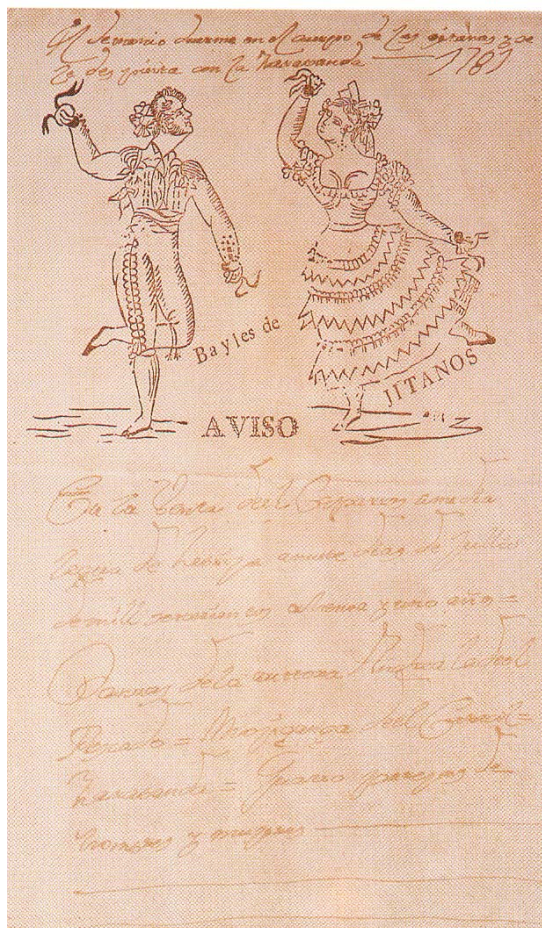 El demonio duerme en el cuerpo de las gitanas y se
le despierta con la zaravanda 1781
Bayles de
JITANOS
AVISO
En la Venta del Caparrós a media
legua de Lebrija a nuebe dias de Jullio
de mill setecientos ochenta y uno años =
Danzas de la gitana Andrea la del
Pescado = Mojiganga del Carril =
Zaravanda = Quatro parejas de
hombres y mugeres